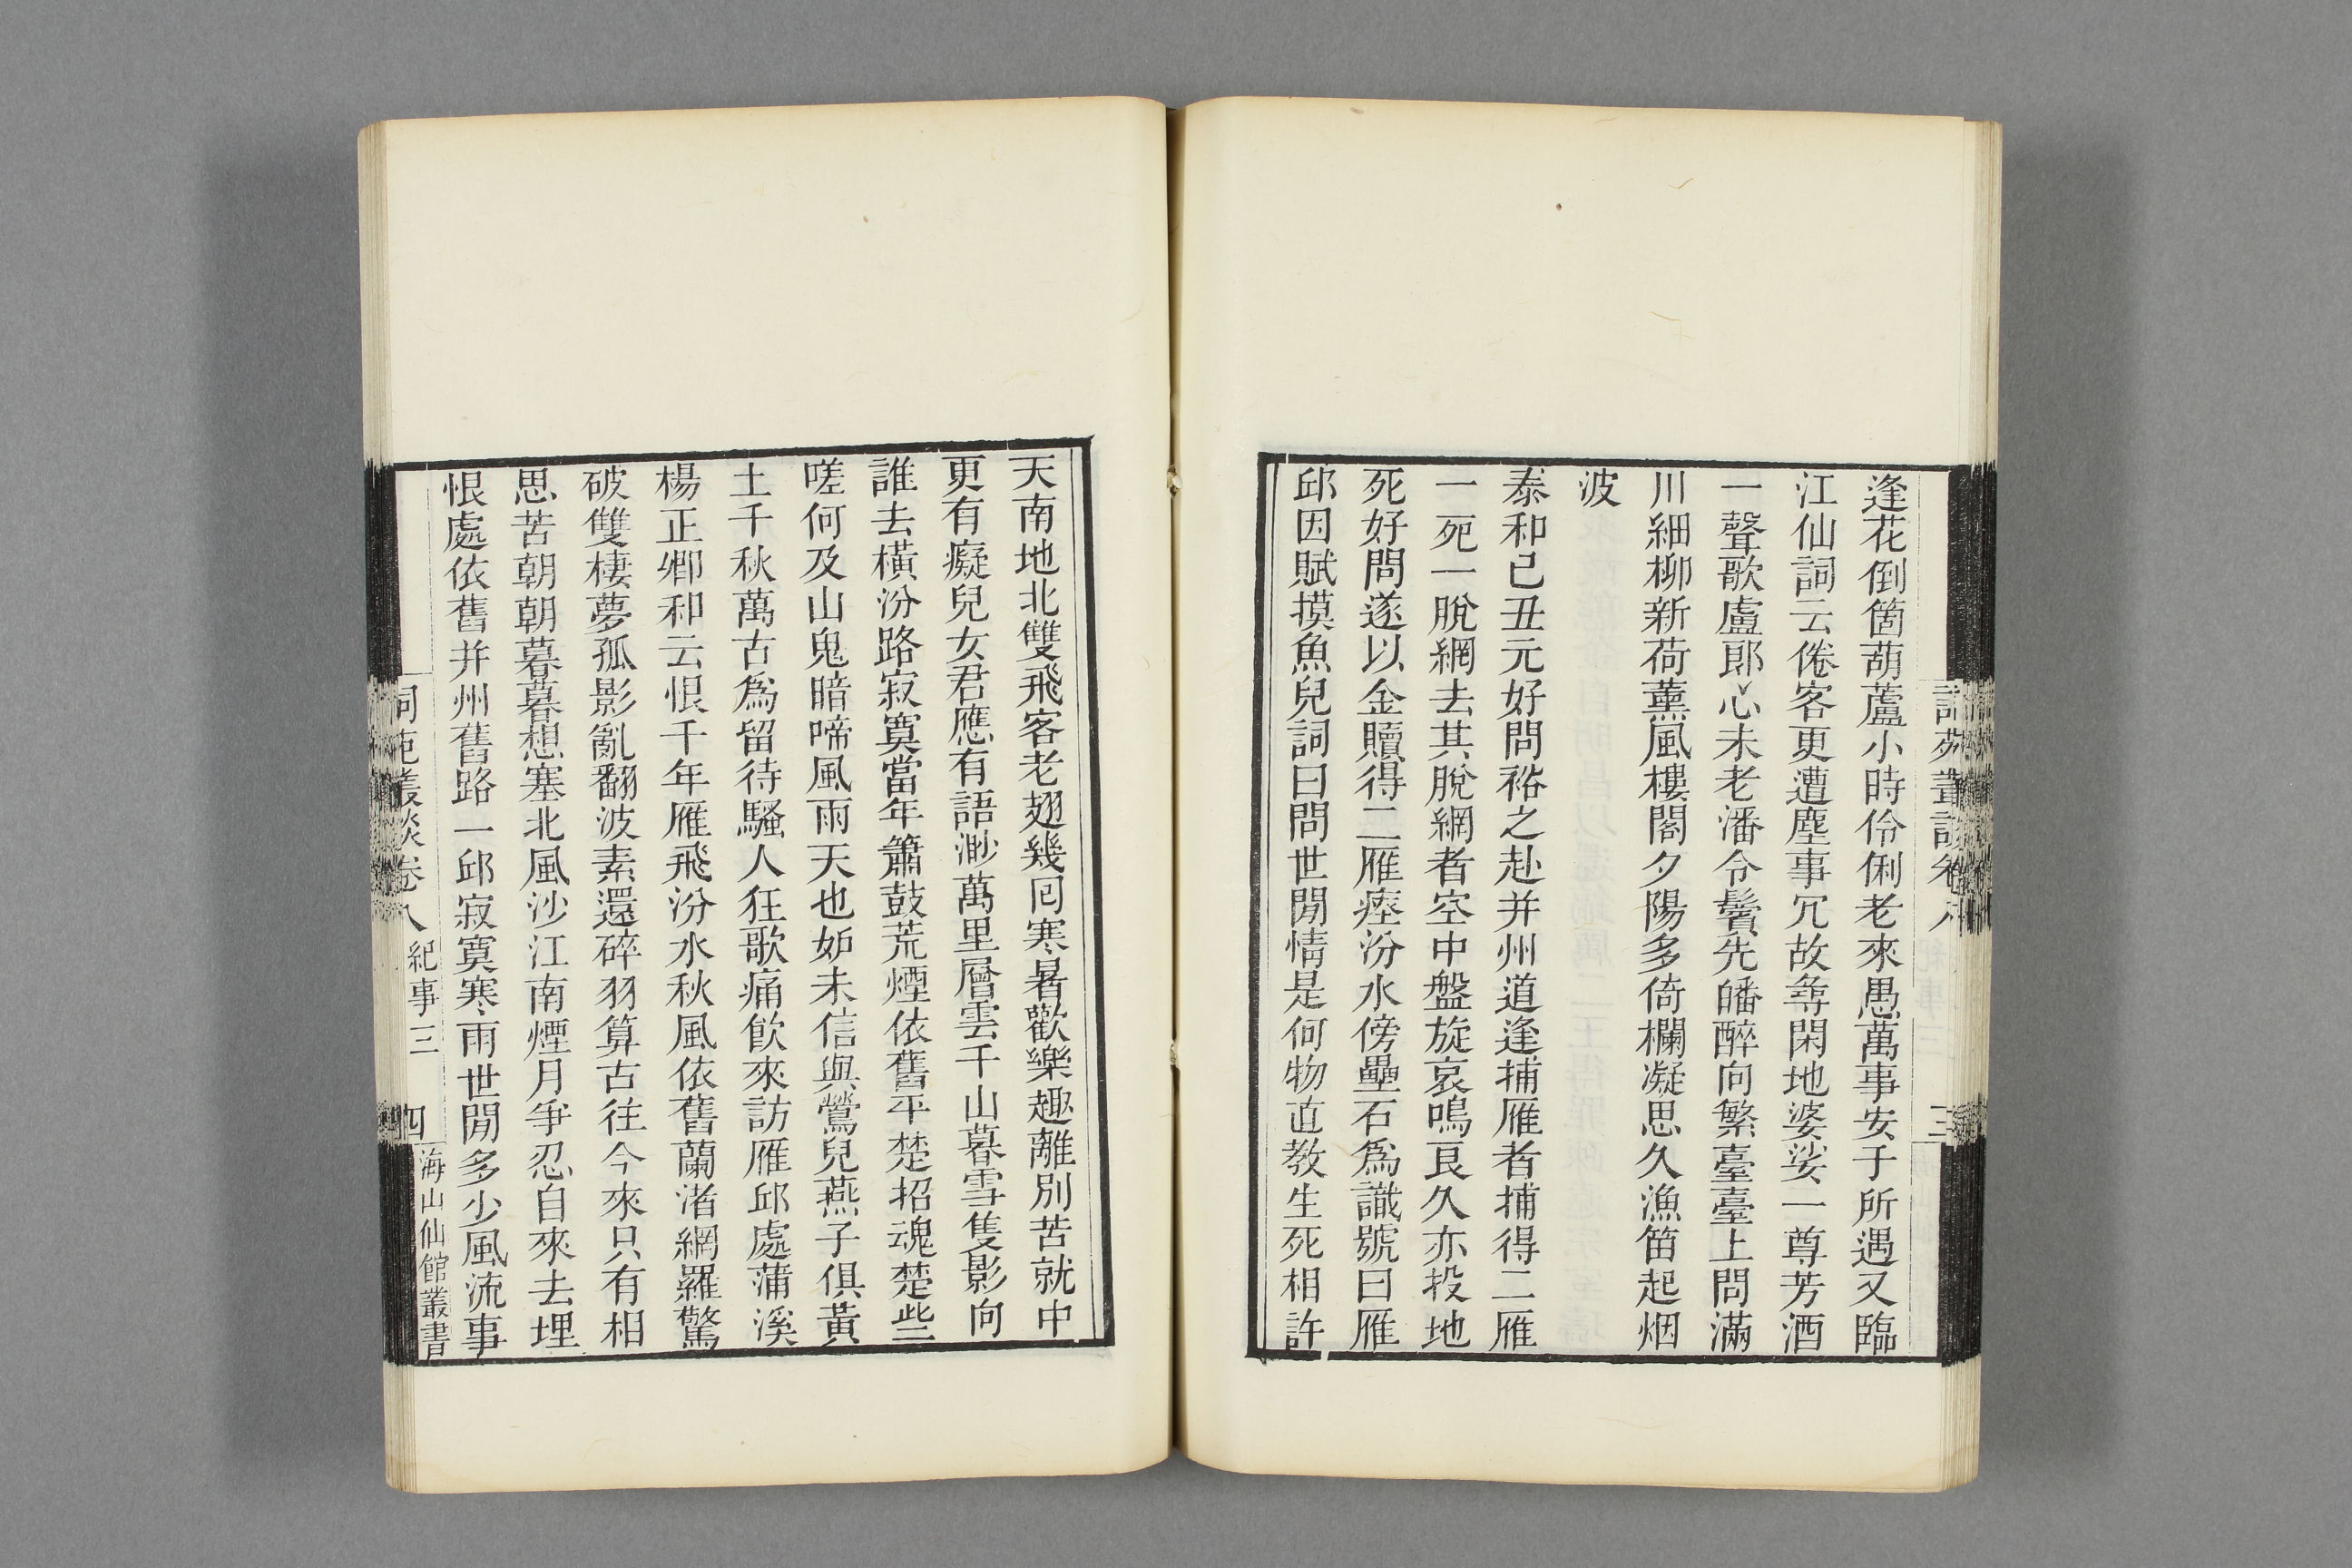 詞苑叢談卷八 紀事三 三
逢花倒箇葫蘆小時伶俐老來愚萬事安于所遇又臨
江仙詞云倦客更遭塵事冗故尋閑地婆娑一尊芳酒
一聲歌盧郎心未老潘令鬢先皤醉向繁臺臺上問滿
川細柳新荷薰風樓閣夕陽多倚欄凝思久漁笛起烟
波
泰和己丑元好問裕之赴并州道逢捕雁者捕得二雁
一死一脫網去其脫網者空中盤旋哀鳴良久亦投地
死好問遂以金贖得二雁瘞汾水傍壘石為識號曰雁
邱因賦摸魚兒詞曰問世閒情是何物直教生死相許
天南地北雙飛客老翅幾回寒暑歡樂趣離別苦就中
更有癡兒女君應有語渺萬里層雲千山暮雪隻影向
誰去橫汾路寂寞當年簫鼓荒煙依舊平楚招魂楚些
嗟何及山鬼暗啼風雨天也妒未信與鶯兒燕子俱黃
土千秋萬古爲留待騷人狂歌痛飲來訪雁邱處蒲溪
楊正卿和云恨千年雁飛汾水秋風依舊蘭渚網羅驚
破雙棲夢孤影亂翻波素還碎羽算古往今來只有相
思苦朝朝暮暮想塞北風沙江南煙月爭忍自來去埋
恨處依舊并州舊路一邱寂寞寒雨世閒多少風流事
詞苑叢談卷八 紀事三 四 海山仙館叢書